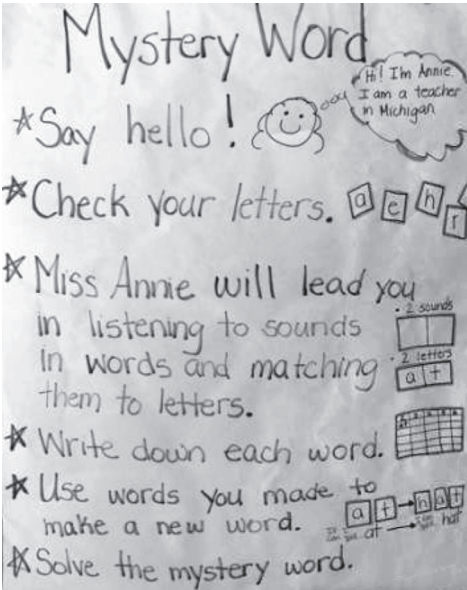 Mystery Word
Hi! I'm Annie.
I am a teacher
in Michigan
☆Say hello!
☆Check your letters. a e h r
☆Miss Annie will lead you
in listening to sounds
in words and matching
them to letters.
• 2 sounds
• 2 letters
a t
☆Write down each word.
☆Use words you made to
make a new word.
a t → h a t
at → hat
☆Solve the mystery word.